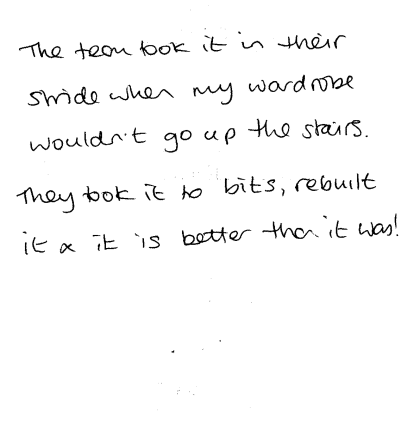 The team took it in their
stride when my wardrobe
wouldn't go up the stairs.
They took it to bits, rebuilt
it & it is better than it was!